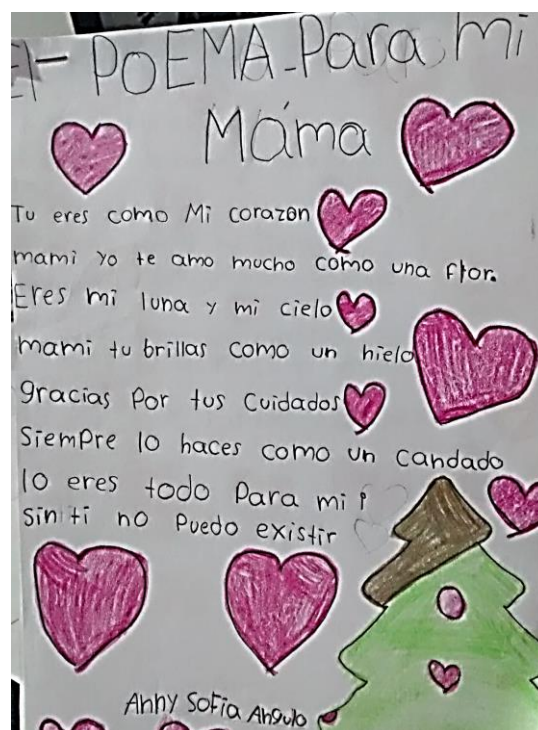 El- POEMA-Para mi
Máma
Tu eres como Mi corazón
mami yo te amo mucho como una flor.
Eres mi luna y mi cielo
mami tu brillas como un hielo
gracias Por tus Cuidados
Siempre lo haces como un Candado
lo eres todo Para mi
Sin ti no Puedo existir
Anny Sofía Angulo